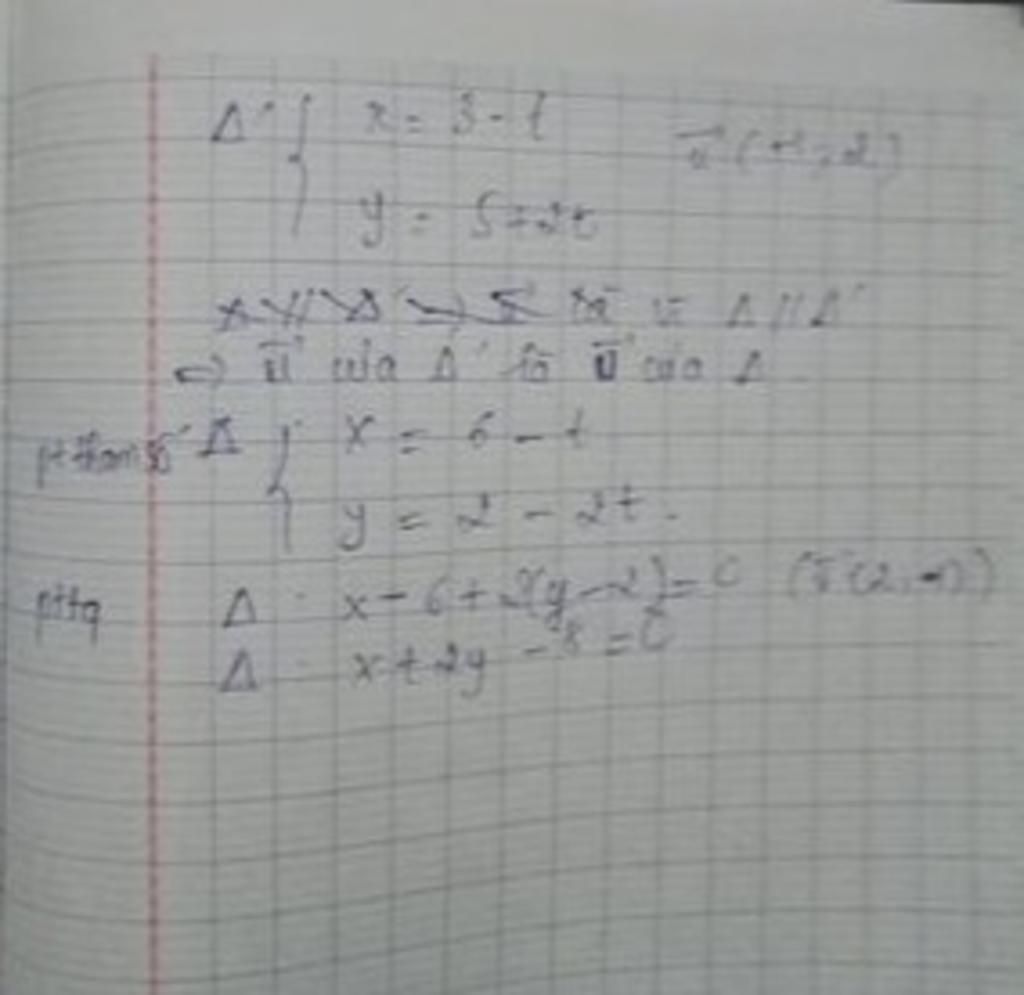 Δ' { x = 3 - t
y = 5 - 2t
vì Δ // Δ'
=> u của Δ' là u của Δ
pt tham số Δ { x = 6 - t
y = 2 - 2t.
pttq Δ: x - 6 + 2(y - 2) = 0
Δ: x + 2y - 8 = 0